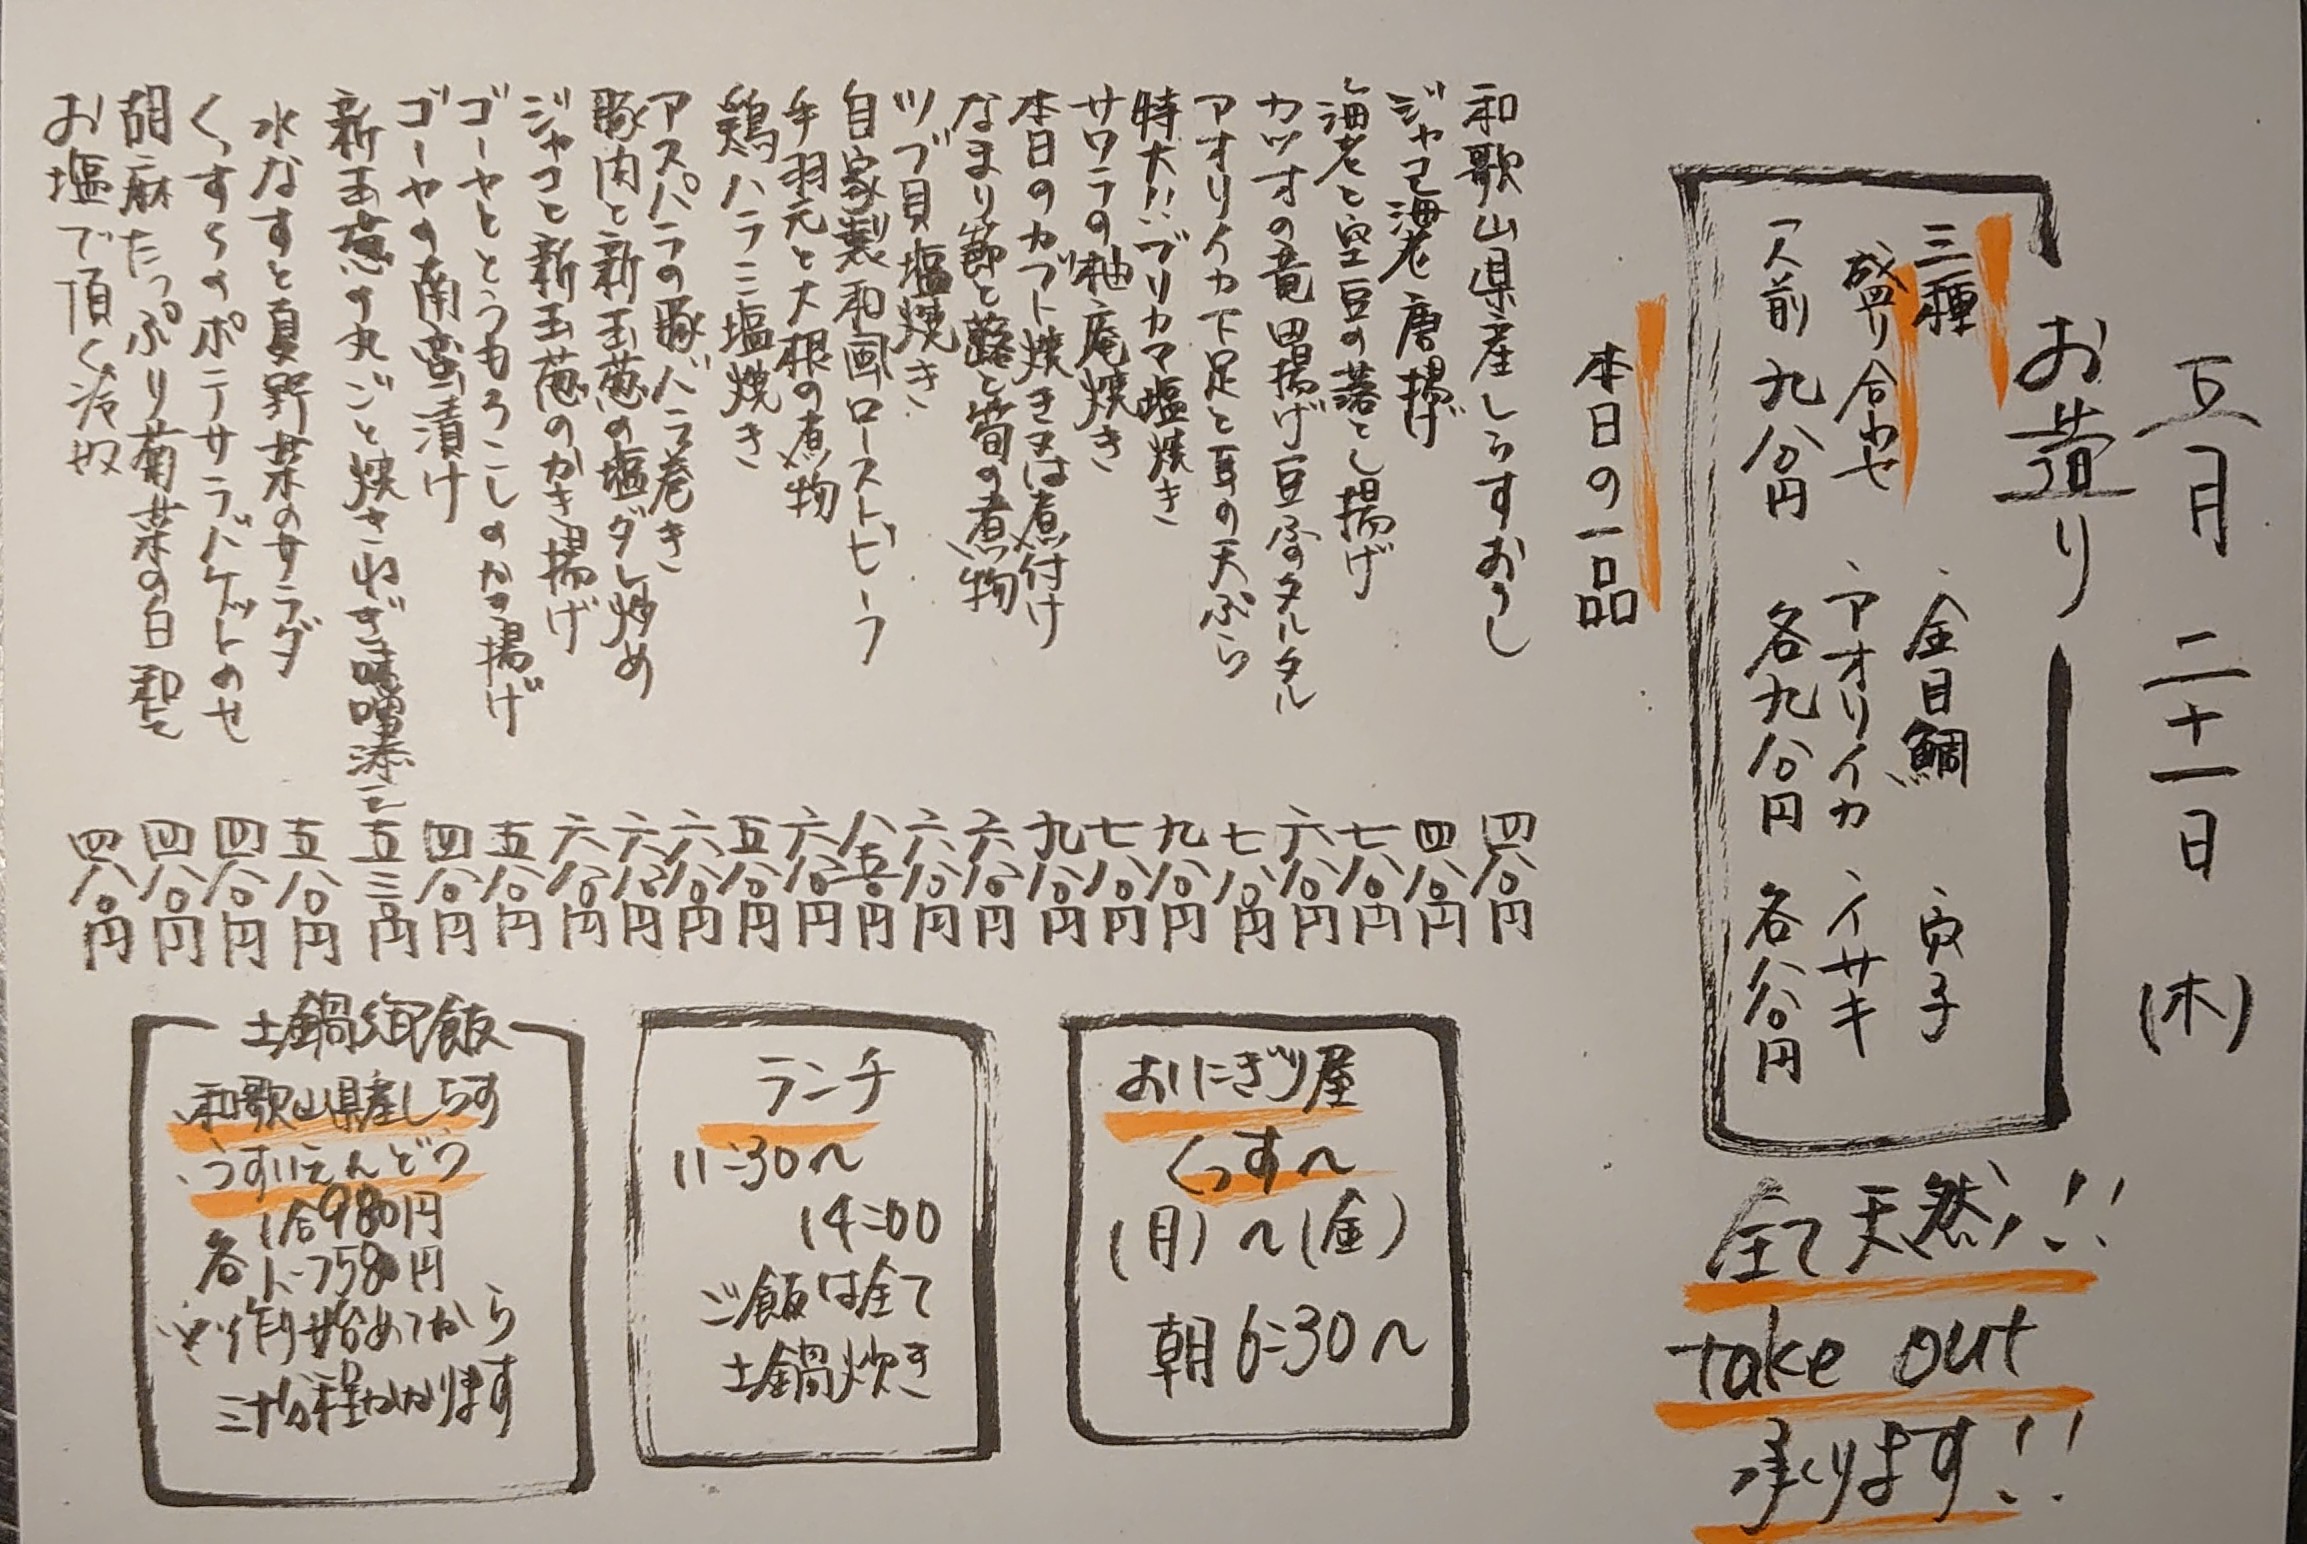 五月二十一日(木)
お造り
三種
盛り合わせ
一人前 九八〇円
・金目鯛
・アオリイカ
各九八〇円
・イサキ
各八八〇円
全て天然!!
take out
承ります!!
本日の一品
和歌山県産しらすおろし 四八〇円
ジャコ海老唐揚げ 四八〇円
海老と空豆の落とし揚げ 七八〇円
カツオの竜田揚げ豆ふのタルタル 六八〇円
アオリイカ下足と耳の天ぷら 七八〇円
特大!!ブリカマ塩焼き 九八〇円
サワラの柚庵焼き 七八〇円
本日のカブト焼き又は煮付け 九八〇円
なまり節と蕗と筍の煮物 六八〇円
ツブ貝塩焼き 六八〇円
自家製和風ローストビーフ 八五〇円
手羽元と大根の煮物 六八〇円
鶏ハラミ塩焼き 五八〇円
アスパラの豚バラ巻き 六八〇円
豚肉と新玉葱の塩ダレ炒め 六八〇円
ジャコと新玉葱のかき揚げ 六八〇円
ゴーヤととうもろこしのかき揚げ 五八〇円
ゴーヤの南蛮漬け 四八〇円
新玉葱の丸ごと焼きねぎ味噌添え 五三〇円
水なすと夏野菜のサラダ 五八〇円
くっす〜のポテサラバケットのせ 四八〇円
胡麻たっぷり菊菜の白和え 四八〇円
お塩で頂く冷奴 四八〇円
おにぎり屋
くっす〜
(月)〜(金)
朝6:30〜
ランチ
11:30〜
14:00
ご飯は全て
土鍋炊き
土鍋御飯
・和歌山県産しらす
・うすいえんどう
各
1合980円
ハーフ580円
※作り始めてから
三十分程かかります